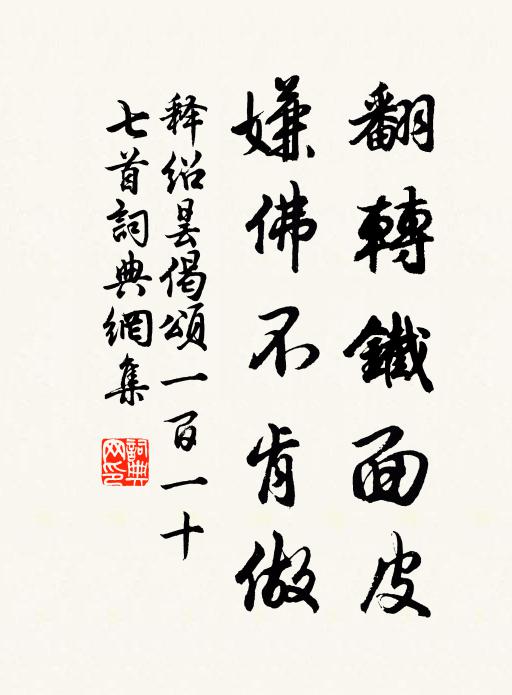 翻轉鐵面皮
嫌佛不肯做
释绍昙偈頌一百一十
七首詞典網集
詞典
网印